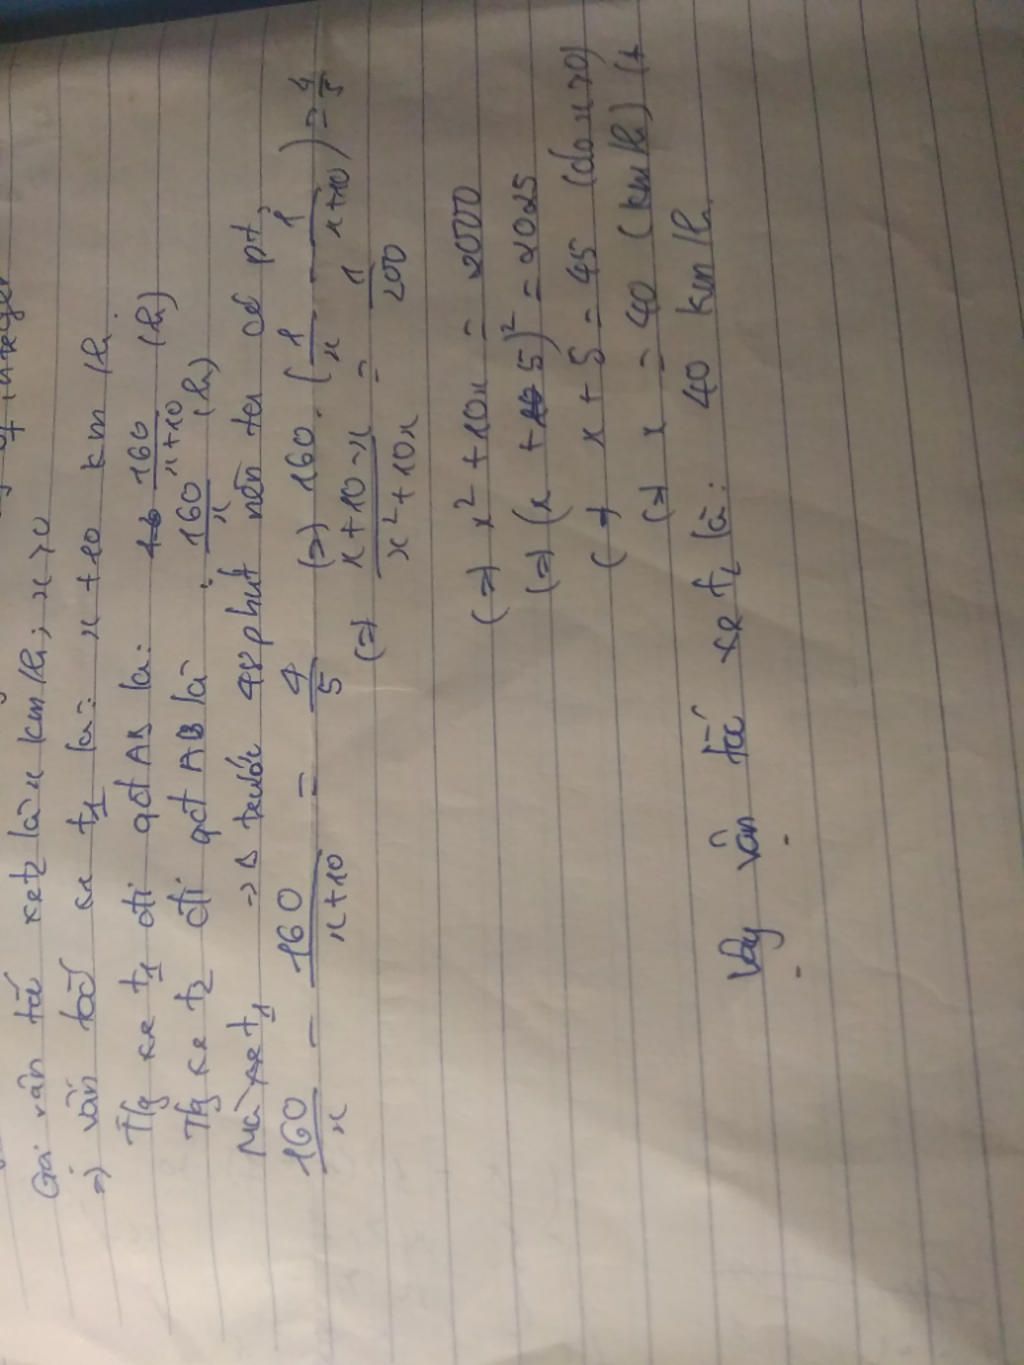 of integer
Gọi vận tốc xe t2 là x km/h; x>0
=) vận tốc xe t1 là: x + 10 km/h.
Thg xe t1 đi qđ AB là: 160/(x+10) (h)
Thg xe t2 đi qđ AB là: 160/x (h)
Mà xe t1 -> B trước 48 phút nên ta có pt,
160/x - 160/(x+10) = 4/5 (=) 160. (1/x - 1/(x+10)) = 4/5
(=) (x+10-x)/(x²+10x) = 1/200
(=) x² + 10x = 2000
(=) (x + 5)² = 2025
(=) x + 5 = 45 (do x>0)
(=) x = 40 (km/h) (t
Vậy vận tốc xe t2 là: 40 km/h.